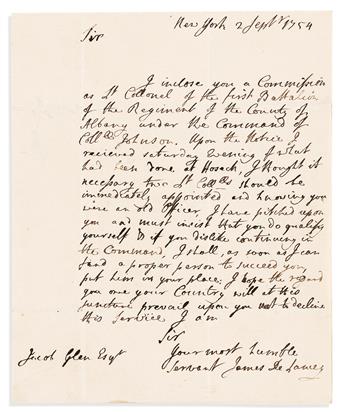 New York 2 Septr 1754
Sir
I inclose you a Commission
as Lt Collonel of the first Battalion
of the Regiment of the County of
Albany under the Command of
Colll Johnson. Upon the Notice I
recieved saturday Evening of what
had been done at Hosack, I thought it
necessary two Lt Collls should be
immediately appointed and knowing you
were an old Officer, I have pitched upon
you and must insist that you do qualifie
yourself & if you dislike continuing in
the Command, I shall, as soon as I can
find a proper person to succeed you
put him in your place. I hope the regard
you owe your Country will at this
juncture prevail upon you not to decline
this Service I am
Sir
Your most humble
Servant James De Lancey
Jacob Glen Esqr